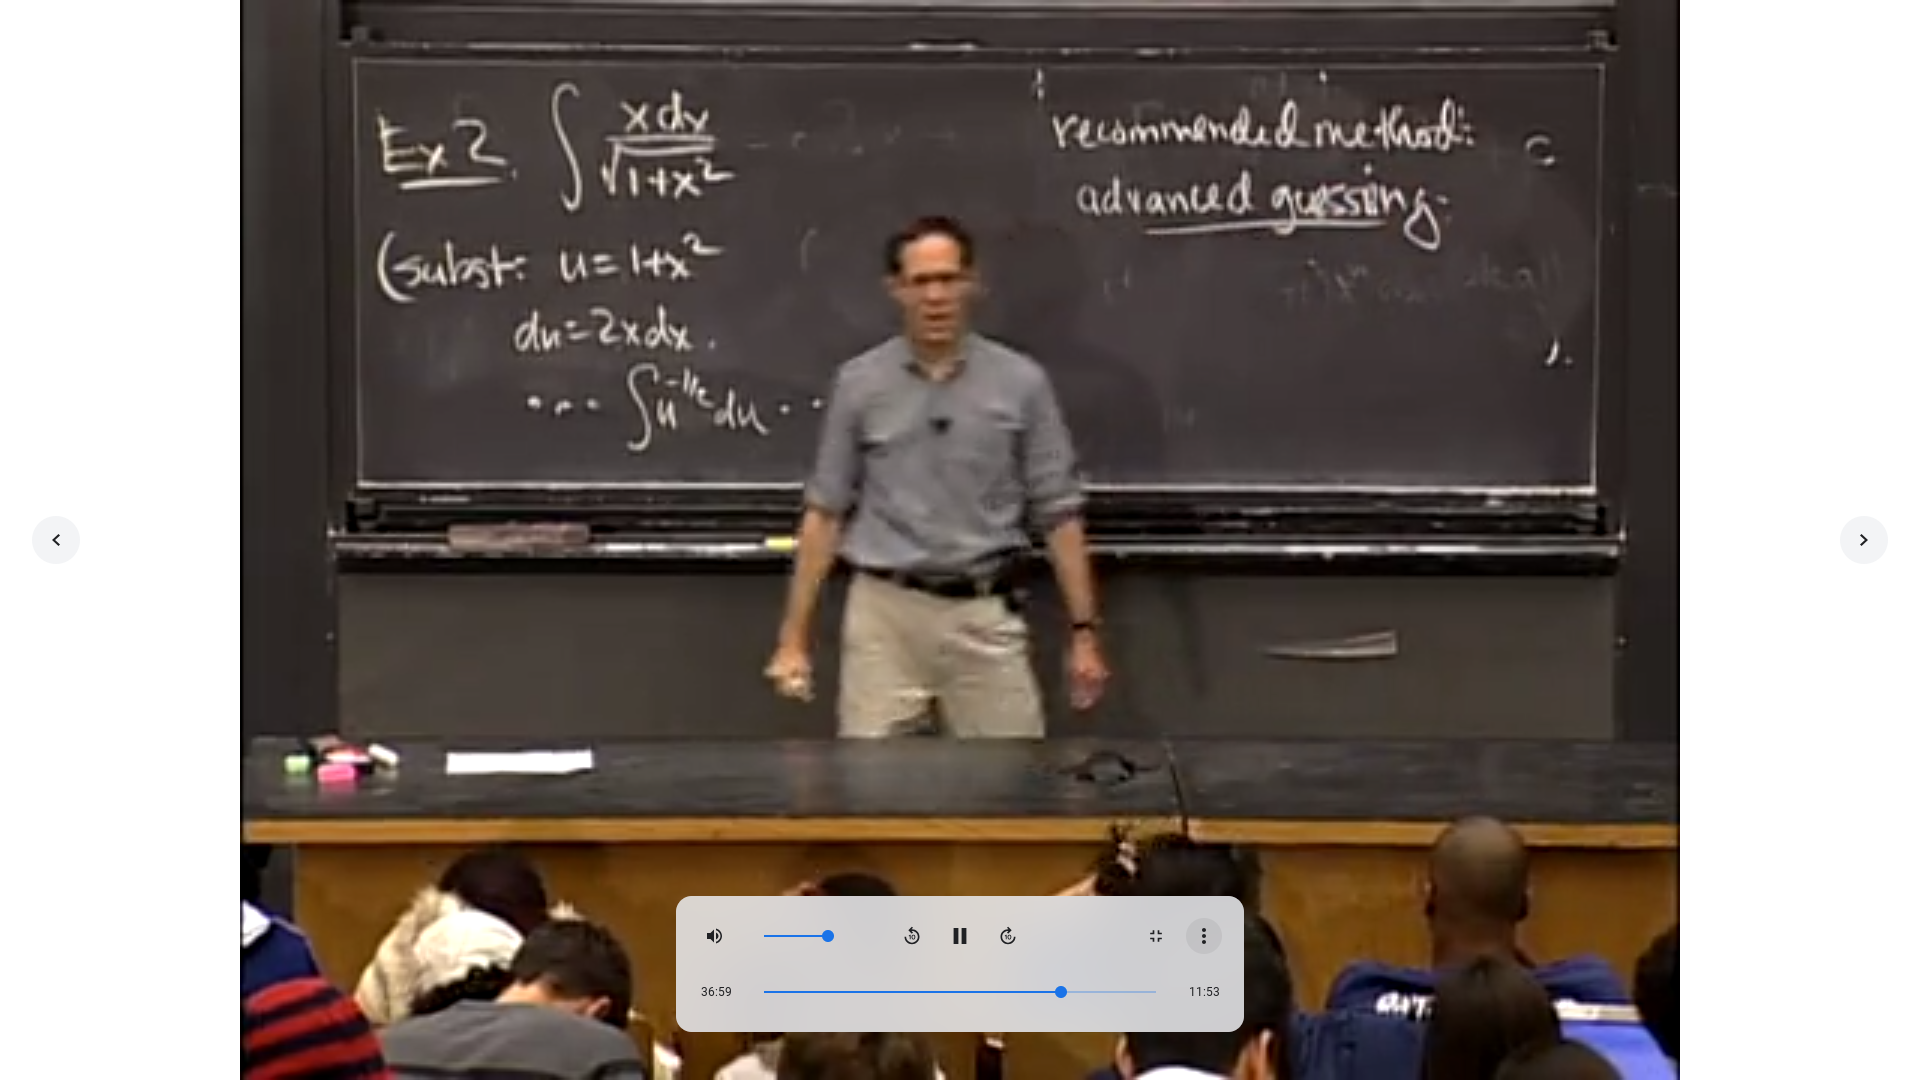 Ex 2. ∫ x dx / √(1+x²)
(subst: u = 1+x²
du = 2x dx.
... ∫ u^(-1/2) du ..
recommended method:
advanced guessing.
36:59
11:53